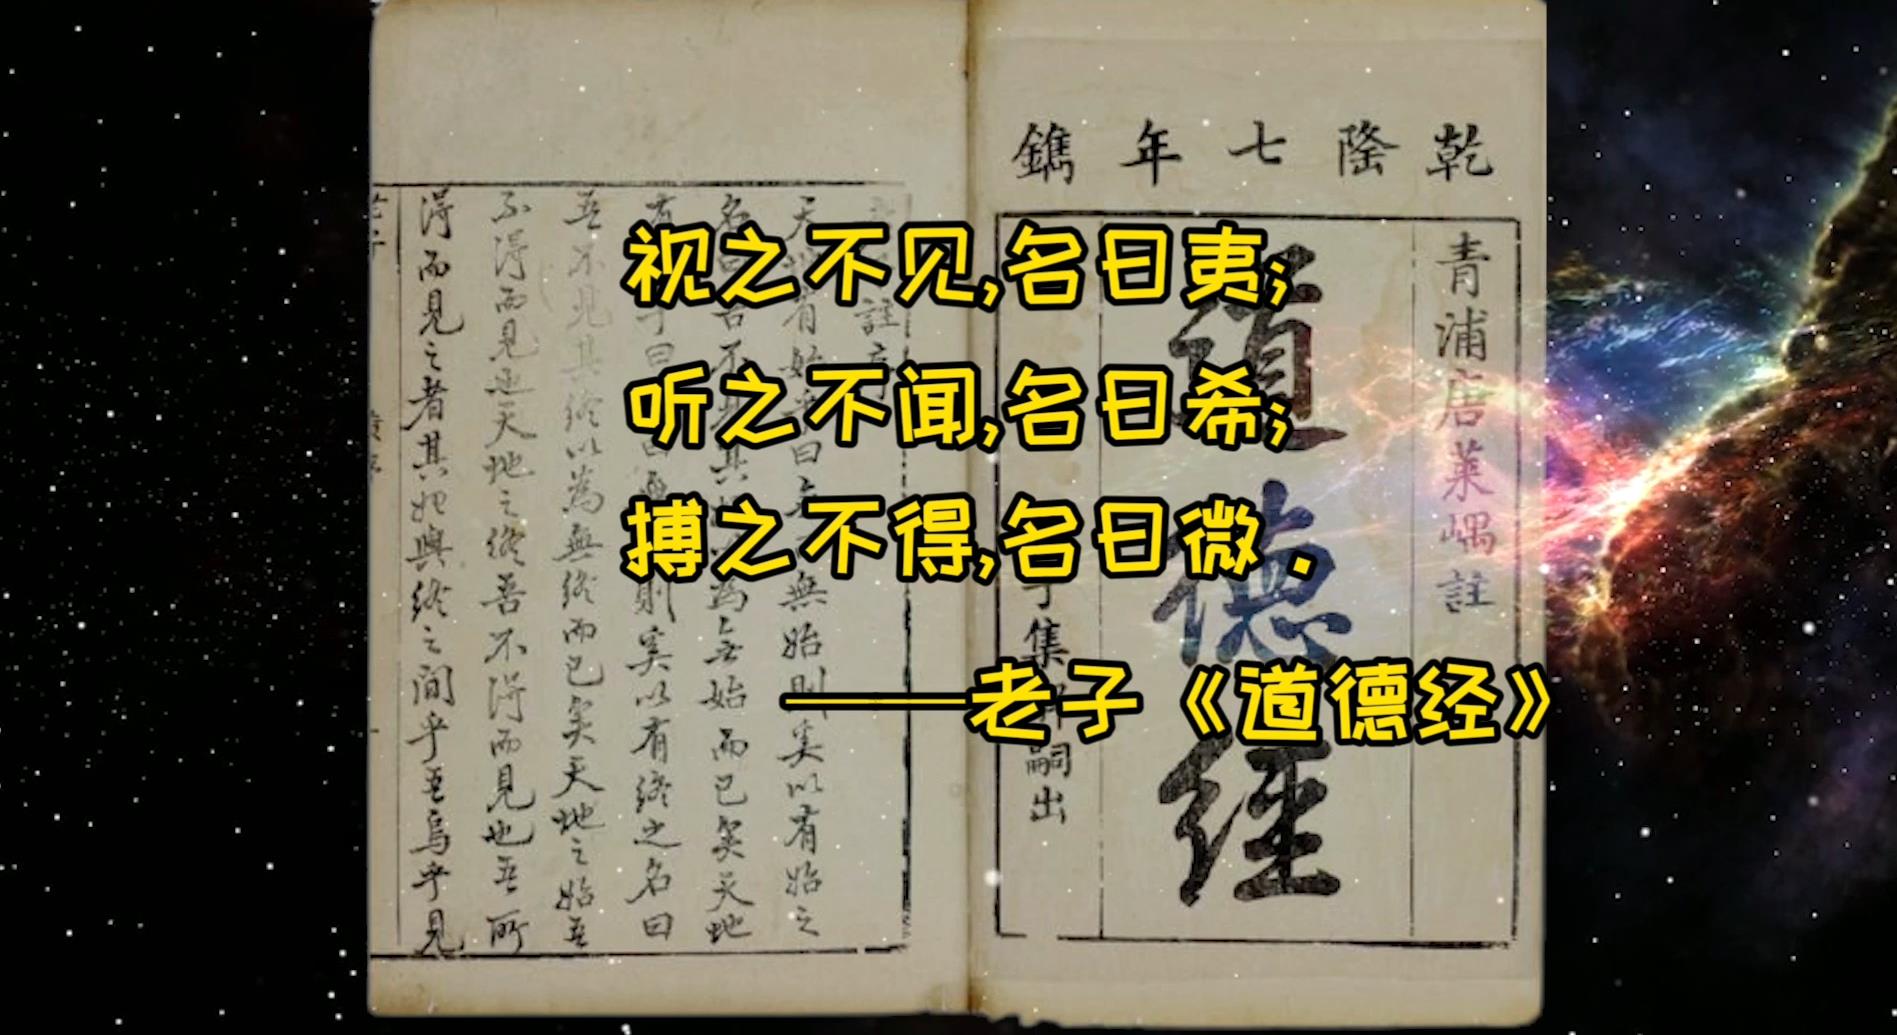 视之不见,名曰夷;
听之不闻,名曰希;
搏之不得,名曰微.
——老子《道德经》
乾隆七年鐫
青浦唐萊嵎註
道德經
子集 嗣出
註序
天 有始 曰 無始則奚以有始之
名曰 吾不 其 為無始而已矣天地
有 子曰 曰無 則奚以有終之名曰
吾不見其終以為無終而已矣天地之始吾
不得而見也天地之終吾不得而見也吾所
得而見之者其始與終之間乎吾烏乎見